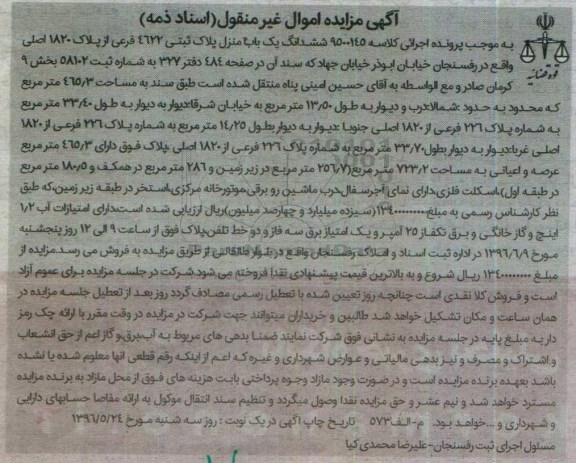 آگهی مزایده اموال غیر منقول(اسناد ذمه)
به موجب پرونده اجرائی کلاسه ۹۵۰۰۱۴۵ ششدانگ یک باب منزل پلاک ثبتی ۴۶۲۲ فرعی از پلاک ۱۸۲۰ اصلی
واقع در رفسنجان خیابان ابوذر خیابان جهاد که سند آن در صفحه ۴۸۴ دفتر ۳۲۷ به شماره ثبت ۵۸۱۰۲ بخش ۹
کرمان صادر و مع الواسطه به آقای حسین امینی پناه منتقل شده است طبق سند به مساحت ۴۶۵/۳ متر مربع
که محدود به حدود :شمالا:درب و دیوار به طول ۱۳/۵۰ متر مربع به خیابان شرقا:دیوار به دیوار به طول ۳۳/۴۰ متر مربع
به شماره پلاک ۲۲۶ فرعی از ۱۸۲۰ اصلی جنوبا :دیوار به دیوار بطول ۱۴/۲۵ متر مربع به شماره پلاک ۲۲۶ فرعی از ۱۸۲۰
اصلی غربا:دیوار به دیوار بطول ۳۳/۷۰ متر مربع به شماره پلاک ۲۲۶ فرعی از ۱۸۲۰ اصلی .پلاک فوق دارای ۴۶۵/۳ متر مربع
عرصه و اعیانی به مساحت ۷۲۳/۲ متر مربع(۲۵۶/۷ متر مربع در زیر زمین و ۲۸۶ متر مربع در همکف و ۱۸۰/۵ متر مربع
در طبقه اول)،اسکلت فلزی،دارای نمای آجرسفال،درب ماشین رو برقی،موتورخانه مرکزی،استخر در طبقه زیر زمین،که طبق
نظر کارشناس رسمی به مبلغ ۱۳۴۰۰۰۰۰۰۰۰(سیزده میلیارد و چهارصد میلیون)ریال ارزیابی شده است،دارای امتیازات آب ۱/۲
اینچ و گاز خانگی و برق تکفاز ۲۵ آمپر و یک امتیاز برق سه فاز و دو خط تلفن،پلاک فوق از ساعت ۹ الی ۱۲ روز پنجشنبه
مورخ ۱۳۹۶/۶/۹ در اداره ثبت اسناد و املاک رفسنجان واقع در بلوار طالقانی از طریق مزایده به فروش می رسد.مزایده از
مبلغ ۱۳۴۰۰۰۰۰۰۰۰ ریال شروع و به بالاترین قیمت پیشنهادی نقدا فروخته می شود.شرکت در جلسه مزایده برای عموم آزاد
است و فروش کلا نقدی است چنانچه روز تعیین شده با تعطیل رسمی مصادف گردد روز بعد از تعطیل جلسه مزایده در
همان ساعت و مکان تشکیل خواهد شد طالبین و خریداران میتوانند جهت شرکت در مزایده در وقت مقرر با ارائه چک رمز
دار به مبلغ پایه در جلسه مزایده به نشانی فوق شرکت نمایند ضمنا بدهی های مربوط به آب،برق،و گاز اعم از حق انشعاب
و اشتراک و مصرف و نیز بدهی مالیاتی و عوارض شهرداری و غیره که اعم از اینکه رقم قطعی انها معلوم شده یا نشده
باشد بعهده برنده مزایده است و در صورت وجود مازاد وجوه پرداختی بابت هزینه های فوق از محل مازاد به برنده مزایده
مسترد خواهد شد و نیم عشر و حق مزایده نقدا وصول میگردد و تنظیم سند انتقال موکول به ارائه مفاصا حسابهای دارایی
و شهرداری و ...خواهد بود. م-الف۵۷۳ تاریخ چاپ آگهی در یک نوبت : روز سه شنبه مورخ ۱۳۹۶/۵/۲۴
مسئول اجرای ثبت رفسنجان-علیرضا محمدی کیا